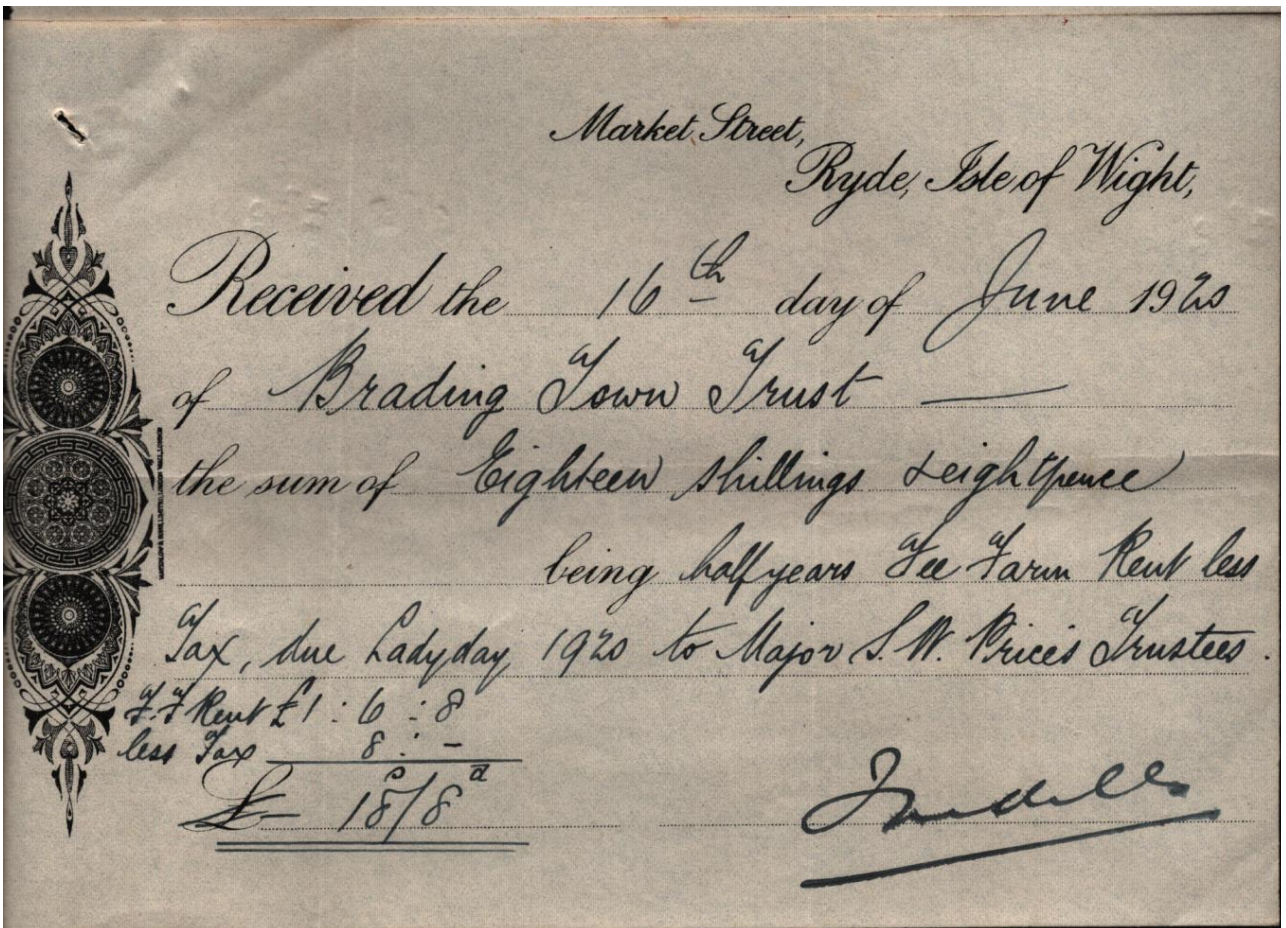 Market Street,
Ryde, Isle of Wight,
Received the 16th day of June 1920
of Brading Town Trust —
the sum of Eighteen shillings & eightpence
being half years Fee Farm Rent less
Tax, due Ladyday 1920 to Major S. W. Price's Trustees.
F. F Rent £1 : 6 : 8
less Tax 8 : -
£ - 18s/8d